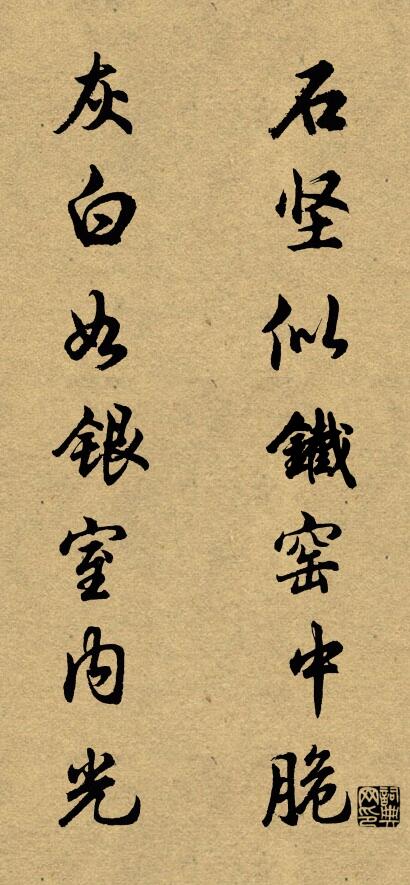 石坚似鐵窑中脆
灰白如银室内光
詞典网印